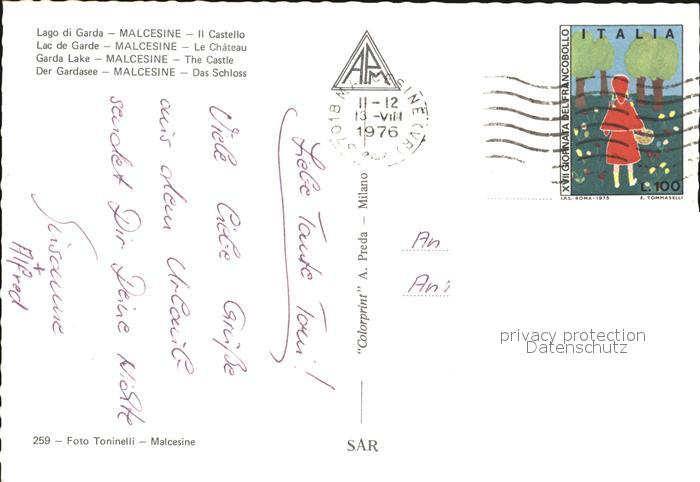 Lago di Garda – MALCESINE – Il Castello
Lac de Garde – MALCESINE – Le Château
Garda Lake – MALCESINE – The Castle
Der Gardasee – MALCESINE – Das Schloss
Liebe Tante Toni!
Viele liebe Grüße
aus dem Urlaub
sendet Dir Deine Nichte
Susanne
+
Alfred
259 – Foto Toninelli – Malcesine
APM
11-12
13-VIII
1976
"Colorprint" A. Preda – Milano
SAR
ITALIA
XVII GIORNATA DEL FRANCOBOLLO
L.100
I.P.S.-ROMA-1975 E. TOMMASELLI
An
An
privacy protection
Datenschutz